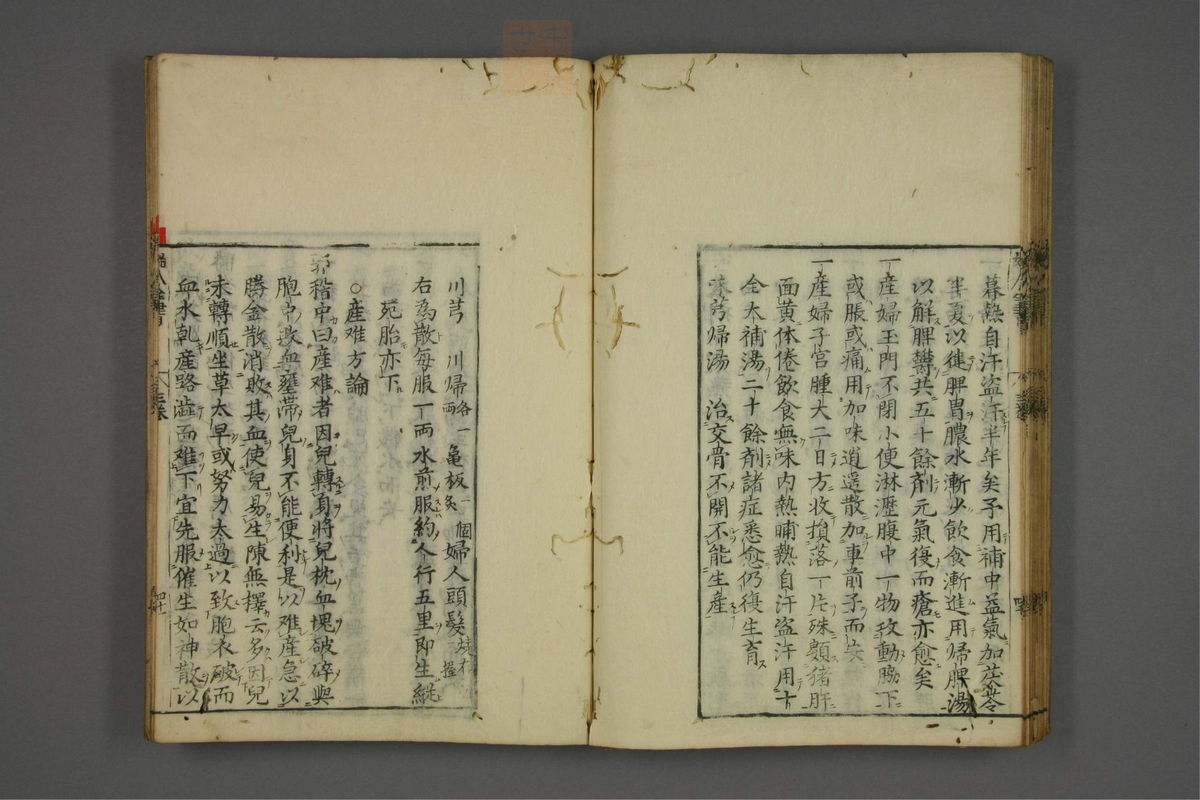 一暮熱自汗盗汗半年矣予用補中益氣加茯苓
半夏以徤脾胃膿水漸少飲食漸進用帰脾湯
以解脾欝共五十餘剤元氣復而瘡亦愈矣
一産婦玉門不閉小便淋瀝腹中一物攻動脇下
或脹或痛用加味逍遥散加車前子而安
一産婦子宮腫大二日方收損落一片殊類猪肝
面黄体倦飲食無味内熱晡熱自汗盗汗用十
全大補湯二十餘剤諸症悉愈仍復生育
味芎帰湯　治交骨不開不能生産
川芎　川帰各一両　亀板炙一個　婦人頭髮
右為散毎服一両水煎服約人行五里即生縦
死胎亦下
○産难方論
郭稽中曰産难者因兒轉身將兒枕血塊破碎與
胞中敗血壅滞兒身不能便利是以难産急以
勝金散消敗其血使兒易生陳無擇云多因兒
未轉順坐草太早或努力太過以致胞衣破而
血水乾産路澁而难下宜先服催生如神散以